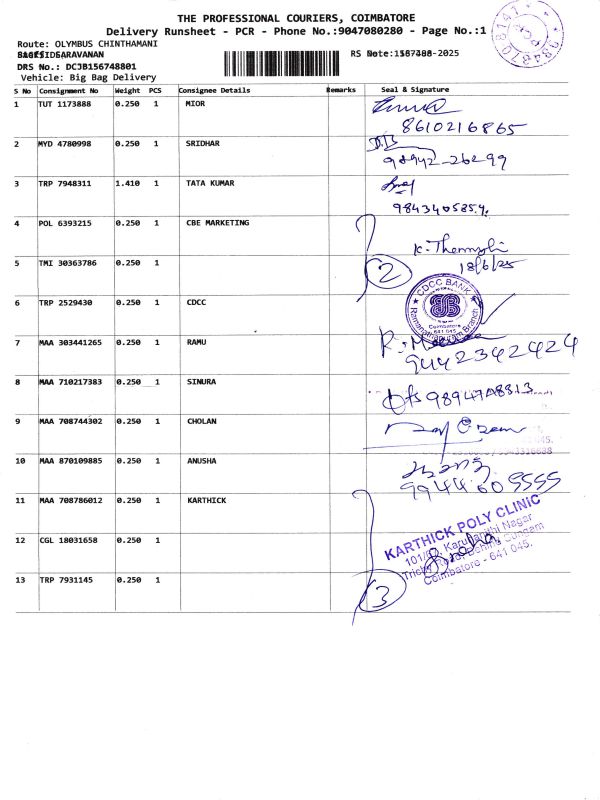 THE PROFESSIONAL COURIERS, COIMBATORE
Delivery Runsheet - PCR - Phone No.:9047080280 - Page No.:1
Route: OLYMBUS CHINTHAMANI
SARAVANAN
DRS No.: DCJB156748801
Vehicle: Big Bag Delivery
S No Consignment No Weight PCS Consignee Details Remarks Seal & Signature
1 TUT 1173888 0.250 1 MIOR
8610216865
2 MYD 4780998 0.250 1 SRIDHAR
98942-26299
3 TRP 7948311 1.410 1 TATA KUMAR
4 POL 6393215 0.250 1 CBE MARKETING
5 TMI 30363786 0.250 1
2 18/6/25
6 TRP 2529430 0.250 1 CDCC
CDCC BANK
Ramanathapuram Branch
Coimbatore
641 045
7 MAA 303441265 0.250 1 RAMU
9442342424
8 MAA 710217383 0.250 1 SINURA
9894748813
9 MAA 708744302 0.250 1 CHOLAN
10 MAA 870109885 0.250 1 ANUSHA
11 MAA 708786012 0.250 1 KARTHICK
KARTHICK POLY CLINIC
12 CGL 18031658 0.250 1
Coimbatore - 641 045.
13 TRP 7931145 0.250 1
3